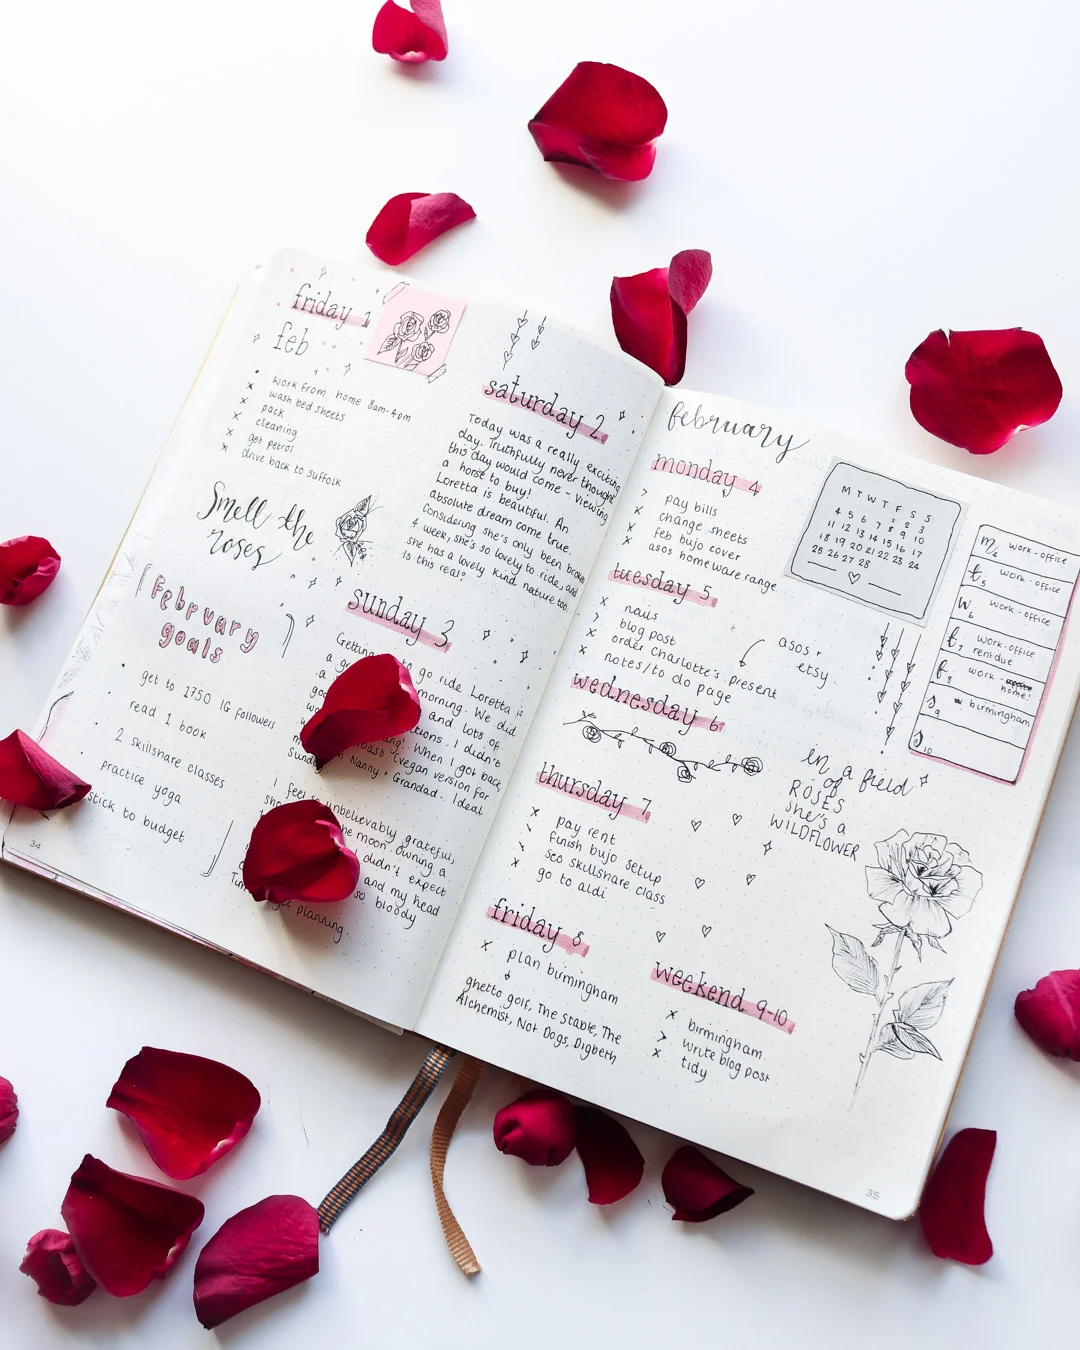 friday 1
feb
work from home 8am-4pm
x wash bed sheets
x pack
x cleaning
x get petrol
x drive back to suffolk
Smell the
roses
February
goals
get to 1750 IG followers
read 1 book
2 skillshare classes
practice yoga
stick to budget
34
saturday 2
Today was a really exciting
day. Truthfully never thought
this day would come - viewing
a horse to buy!
Loretta is beautiful. An
absolute dream come true.
Considering she's only been broken
4 week, she's so lovely to ride, and
she has a lovely kind nature too.
is this real?
sunday 3
Getting to go ride Loretta is
a morning. We did
and lots of
I didn't
When I got back
roast (vegan version for
Nanny + Grandad. Ideal
Sunday
I feel so unbelievably grateful,
the moon. Owning a
didn't expect
and my head
so bloody
get planning.
february
monday 4
> pay bills
x change sheets
x feb bujo cover
x asos homeware range
tuesday 5
x nails
> blog post
x order Charlotte's present
x notes/to do page
asos +
etsy.
wednesday 6
thursday 7
x pay rent
\ finish bujo setup
\ seo skillshare class
x go to aldi
friday 8
x plan birmingham
ghetto golf, The Stable, The
Alchemist, Not Dogs, Digbeth
M T W T F S S
1 2 3
4 5 6 7 8 9 10
11 12 13 14 15 16 17
18 19 20 21 22 23 24
25 26 27 28
m4 work - office
t5 work - office
w6 work - office
t7 work - office
rent due
f8 work - home!
s9 birmingham
s10
in a field
of
ROSES
she's a
WILDFLOWER
weekend 9-10
x birmingham
> write blog post
x tidy
35